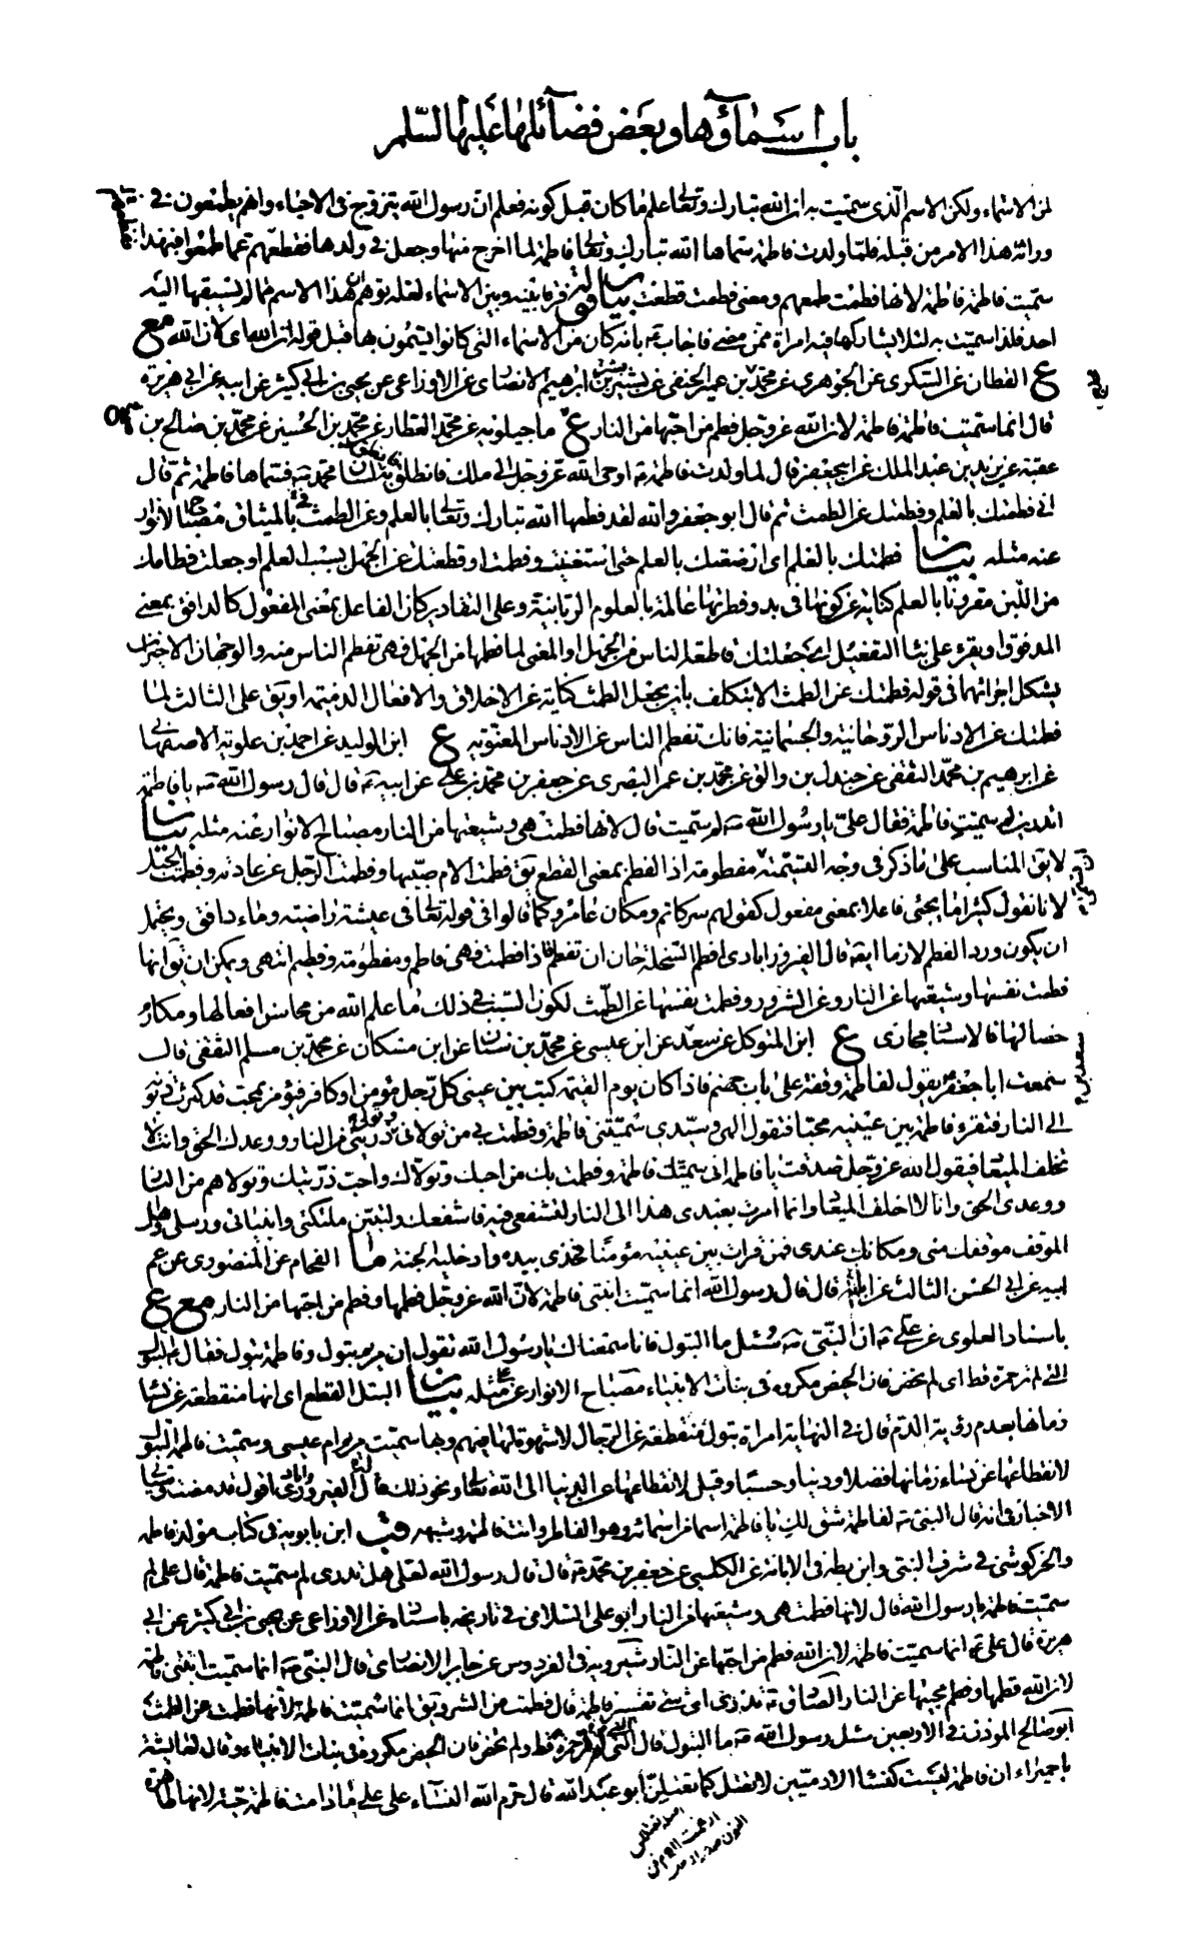 باب اسماؤها وبعض فضائلها عليها السلم
من الاسماء ولكن الاسم الذى سميت به ان الله تبارك وتعالى علم ما كان قبل كونه فعلم ان رسول الله يتزوج فى الاحياء وانهم يطمعون فى
وراثة هذا الامر من قبله فلما ولدت فاطمة سماها الله تبارك وتعالى فاطمة لما اخرج منها وجعل فى ولدها فقطعهم عما طمعوا فبهذا
سميت فاطمة فاطمة لانها فطمت طمعهم ومعنى فطمت قطعت بيان فرق بينه وبين الاسماء لعله توهم ان هذا الاسم مما لم يسبقها اليه
احد فلذا سميت به لئلا يشاركها فيه امراة ممن مضى فاجاب ع بانه كان من الاسماء التى كانوا يسمون بها قبل قوله ان الله اى لان الله مع
ع القطان عن السكرى عن الجوهرى عن محمد بن عمير الحنفى عن بشير بن ابرهيم الانصارى عن الاوزاعى عن يحيى بن ابى كثير عن ابيه عن ابى هريرة
قال انما سميت فاطمة فاطمة لان الله عز وجل فطم من احبها من النار ع ماجيلويه عن محمد العطار عن محمد بن الحسين عن محمد بن صالح بن
عقبة عن يزيد بن عبد الملك عن ابيجعفر قال لما ولدت فاطمة ع اوحى الله عز وجل الى ملك فانطلق به لسان محمد ص فسماها فاطمة ثم قال
انى فطمتك بالعلم وفطمتك عن الطمث ثم قال ابو جعفر والله لقد فطمها الله تبارك وتعالى بالعلم وعن الطمث بالميثاق مصباح الانوار
عنه مثله بيان فطمتك بالعلم اى ارضعتك بالعلم حتى استغنيت وفطمت او قطعتك عن الجهل بسبب العلم او جعلت فطامك
من اللبن مقرونا بالعلم كناية عن كونها فى بدو فطرتها عالمة بالعلوم الربانية وعلى التقادير كان الفاعل بمعنى المفعول كالدافق بمعنى
المدفوق او يقرء على بناء التفعيل اى جعلتك قاطعة الناس من الجهل او المعنى لما فطمها من الجهل فهى تفطم الناس منه والوجهان الاخيران
يشكل اجرائهما فى قوله فطمتك عن الطمث الا بتكلف بان يجعل الطمث كناية عن الاخلاق والافعال الذميمة او يق على الثالث لما
فطمتك عن الادناس الروحانية والجسمانية فانك تفطم الناس عن الادناس المعنوية ع ابن الوليد عن احمد بن علوية الاصبهانى
عن ابرهيم بن محمد الثقفى عن جندل بن والق عن محمد بن عمر البصرى عن جعفر بن محمد بن على عن ابيه ع قال قال رسول الله ص يا فاطمة
اتدرين لم سميت فاطمة فقال على يا رسول الله ص لم سميت قال لانها فطمت هى وشيعتها من النار مصباح الانوار عنه مثله بيان
لا يق المناسب على ما ذكر فى وجه التسمية مفطومة اذ الفطم بمعنى القطع يق فطمت الام صبيها وفطمت الرجل عن عادته وفطمت الحبل
لانا نقول كثيرا ما يجئى فاعلا بمعنى مفعول كقولهم سر كاتم ومكان عامر وكما قالوا فى قوله تعالى فى عيشة راضية وماء دافق ويحتمل
ان يكون ورد الفطم لازما ايضا قال الفيروزابادى افطم السخلة حان ان تفطم فاذا فطمت فهى فاطم ومفطومة وفطيم انتهى ويمكن ان يق انها
فطمت نفسها وشيعتها عن النار وعن الشرور وفطمت نفسها عن الطمث لكون السبب فى ذلك ما علم الله من محاسن افعالها ومكارم
خصالها فالاسناد مجازى ع ابن المتوكل عن سعد عن ابن عيسى عن محمد بن سنان عن ابن مسكان عن محمد بن مسلم الثقفى قال
سمعت ابا جعفر ع يقول لفاطمة وقفة على باب جهنم فاذا كان يوم القيمة كتب بين عينى كل رجل مؤمن او كافر فيؤمر بمحب قد كثرت ذنوبه
الى النار فتقرء فاطمة بين عينيه محبا فتقول الهى وسيدى سميتنى فاطمة وفطمت بى من تولانى وتولى ذريتى من النار ووعدك الحق وانت لا
تخلف الميعاد فيقول الله عز وجل صدقت يا فاطمة انى سميتك فاطمة وفطمت بك من احبك وتولاك واحب ذريتك وتولاهم من النار
ووعدى الحق وانا لا اخلف الميعاد وانما امرت بعبدى هذا الى النار لتشفعى فيه فاشفعك وليتبين ملئكتى وانبيائى ورسلى واهل
الموقف موقفك منى ومكانك عندى فمن قرات بين عينيه مؤمنا فخذى بيده وادخليه الجنة ما الفحام عن المنصورى عن عم
ابيه عن ابى الحسن الثالث عن ابائه قال قال رسول الله انما سميت ابنتى فاطمة لان الله عز وجل فطمها وفطم من احبها من النار مع ع
باسناد العلوى عن على ع ان النبى ص سئل ما البتول فانا سمعناك يا رسول الله تقول ان مريم بتول وفاطمة بتول فقال ع البتول
التى لم تر حمرة قط اى لم تحض فان الحيض مكروه فى بنات الانبياء مصباح الانوار عن على مثله بيان البتل القطع اى انها منقطعة عن نساء
زمانها بعدم رؤية الدم قال فى النهاية امراة بتول منقطعة عن الرجال لا شهوة لها فيهم وبها سميت مريم ام عيسى وسميت فاطمة البتول
لانقطاعها عن نساء زمانها فضلا ودينا وحسبا وقيل لانقطاعها عن الدنيا الى الله تعالى ونحو ذلك قال الفيروزابادى اقول قد مضى فى
الاخبار فى انه قال النبى ص لفاطمة شق لك يا فاطمة اسما من اسمائه وهو الفاطر وانت فاطمة وشبهه قب ابن بابويه فى كتاب مولد فاطمة
والخركوشى فى شرف النبى وابن بطة فى الابانة عن الكلبى عن جعفر بن محمد ع قال قال رسول الله لعلى هل تدرى لم سميت فاطمة قال على لم
سميت فاطمة يا رسول الله قال لانها فطمت هى وشيعتها من النار ابو على السلامى فى تاريخه باسناده عن الاوزاعى عن يحيى بن ابى كثير عن ابى
هريرة قال على ع انما سميت فاطمة لان الله فطم من احبها عن النار شيرويه فى الفردوس عن جابر الانصارى قال النبى ص انما سميت ابنتى فاطمة
لان الله فطمها وفطم محبيها عن النار الصادق ع تدرى اى شئ تفسير فاطمة قال فطمت من الشر ويق انما سميت فاطمة لانها فطمت عن الطمث
ابو صالح المؤذن فى الاربعين سئل رسول الله ص ما البتول قال التى لم تر حمرة قط ولم تحض فان الحيض مكروه فى بنات الانبياء وقال لعايشة
يا حميراء ان فاطمة ليست كنساء الادميين لا تعتل كما تعتلين ابو عبد الله قال حرم الله النساء على على ما دامت فاطمة حية لانها طاهرة